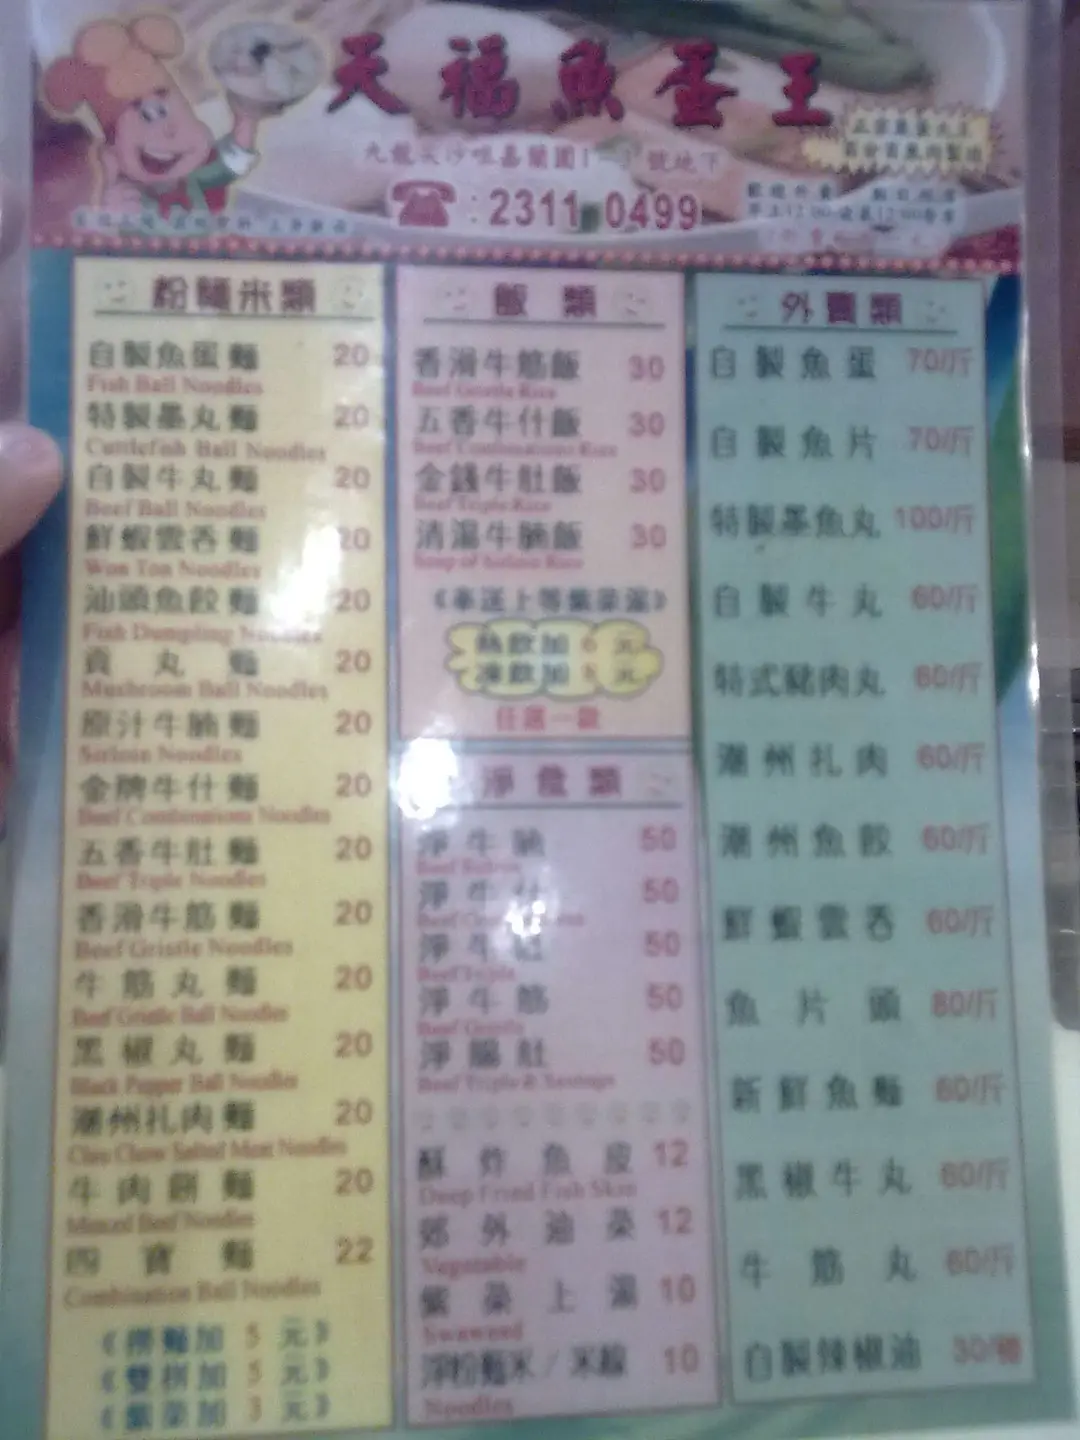 天福魚蛋王
九龍尖沙咀嘉蘭圍1-3號地下
正宗魚蛋大王
☎:2311 0499
粉麵米類
自製魚蛋麵 20
Fish Ball Noodles
特製墨丸麵 20
Cuttlefish Ball Noodles
自製牛丸麵 20
Beef Ball Noodles
鮮蝦雲吞麵 20
Won Ton Noodles
汕頭魚餃麵 20
Fish Dumpling Noodles
貢丸麵 20
Mushroom Ball Noodles
原汁牛腩麵 20
Sirloin Noodles
金牌牛什麵 20
Beef Combinations Noodles
五香牛肚麵 20
Beef Triple Noodles
香滑牛筋麵 20
Beef Gristle Noodles
牛筋丸麵 20
Beef Gristle Ball Noodles
黑椒丸麵 20
Black Pepper Ball Noodles
潮州扎肉麵 20
Chiu Chow Salted Meat Noodles
牛肉餅麵 20
Minced Beef Noodles
四寶麵 22
Combination Ball Noodles
《拼麵加 5 元》
《雙拼加 5 元》
《紫菜加 3 元》
飯類
香滑牛筋飯 30
Beef Gristle Rice
五香牛什飯 30
Beef Combinations Rice
金錢牛肚飯 30
Beef Triple Rice
清湯牛腩飯 30
Soup of Sirloin Rice
《奉送上等紫菜湯》
熱飲加 6 元
凍飲加 8 元
任選一款
淨食類
淨牛腩 50
Beef Sirloin
淨牛什 50
淨牛肚 50
Beef Triple
淨牛筋 50
Beef Gristle
淨腸肚 50
Beef Triple & Sausage
酥炸魚皮 12
Deep Fried Fish Skin
郊外油菜 12
Vegetable
紫菜上湯 10
Seaweed
淨粉麵米/米線 10
Noodles
外賣類
自製魚蛋 70/斤
自製魚片 70/斤
特製墨魚丸 100/斤
自製牛丸 60/斤
特式豬肉丸 60/斤
潮州扎肉 60/斤
潮州魚餃 60/斤
鮮蝦雲吞 60/斤
魚片頭 80/斤
新鮮魚麵 60/斤
黑椒牛丸 60/斤
牛筋丸 60/斤
自製辣椒油 30/樽